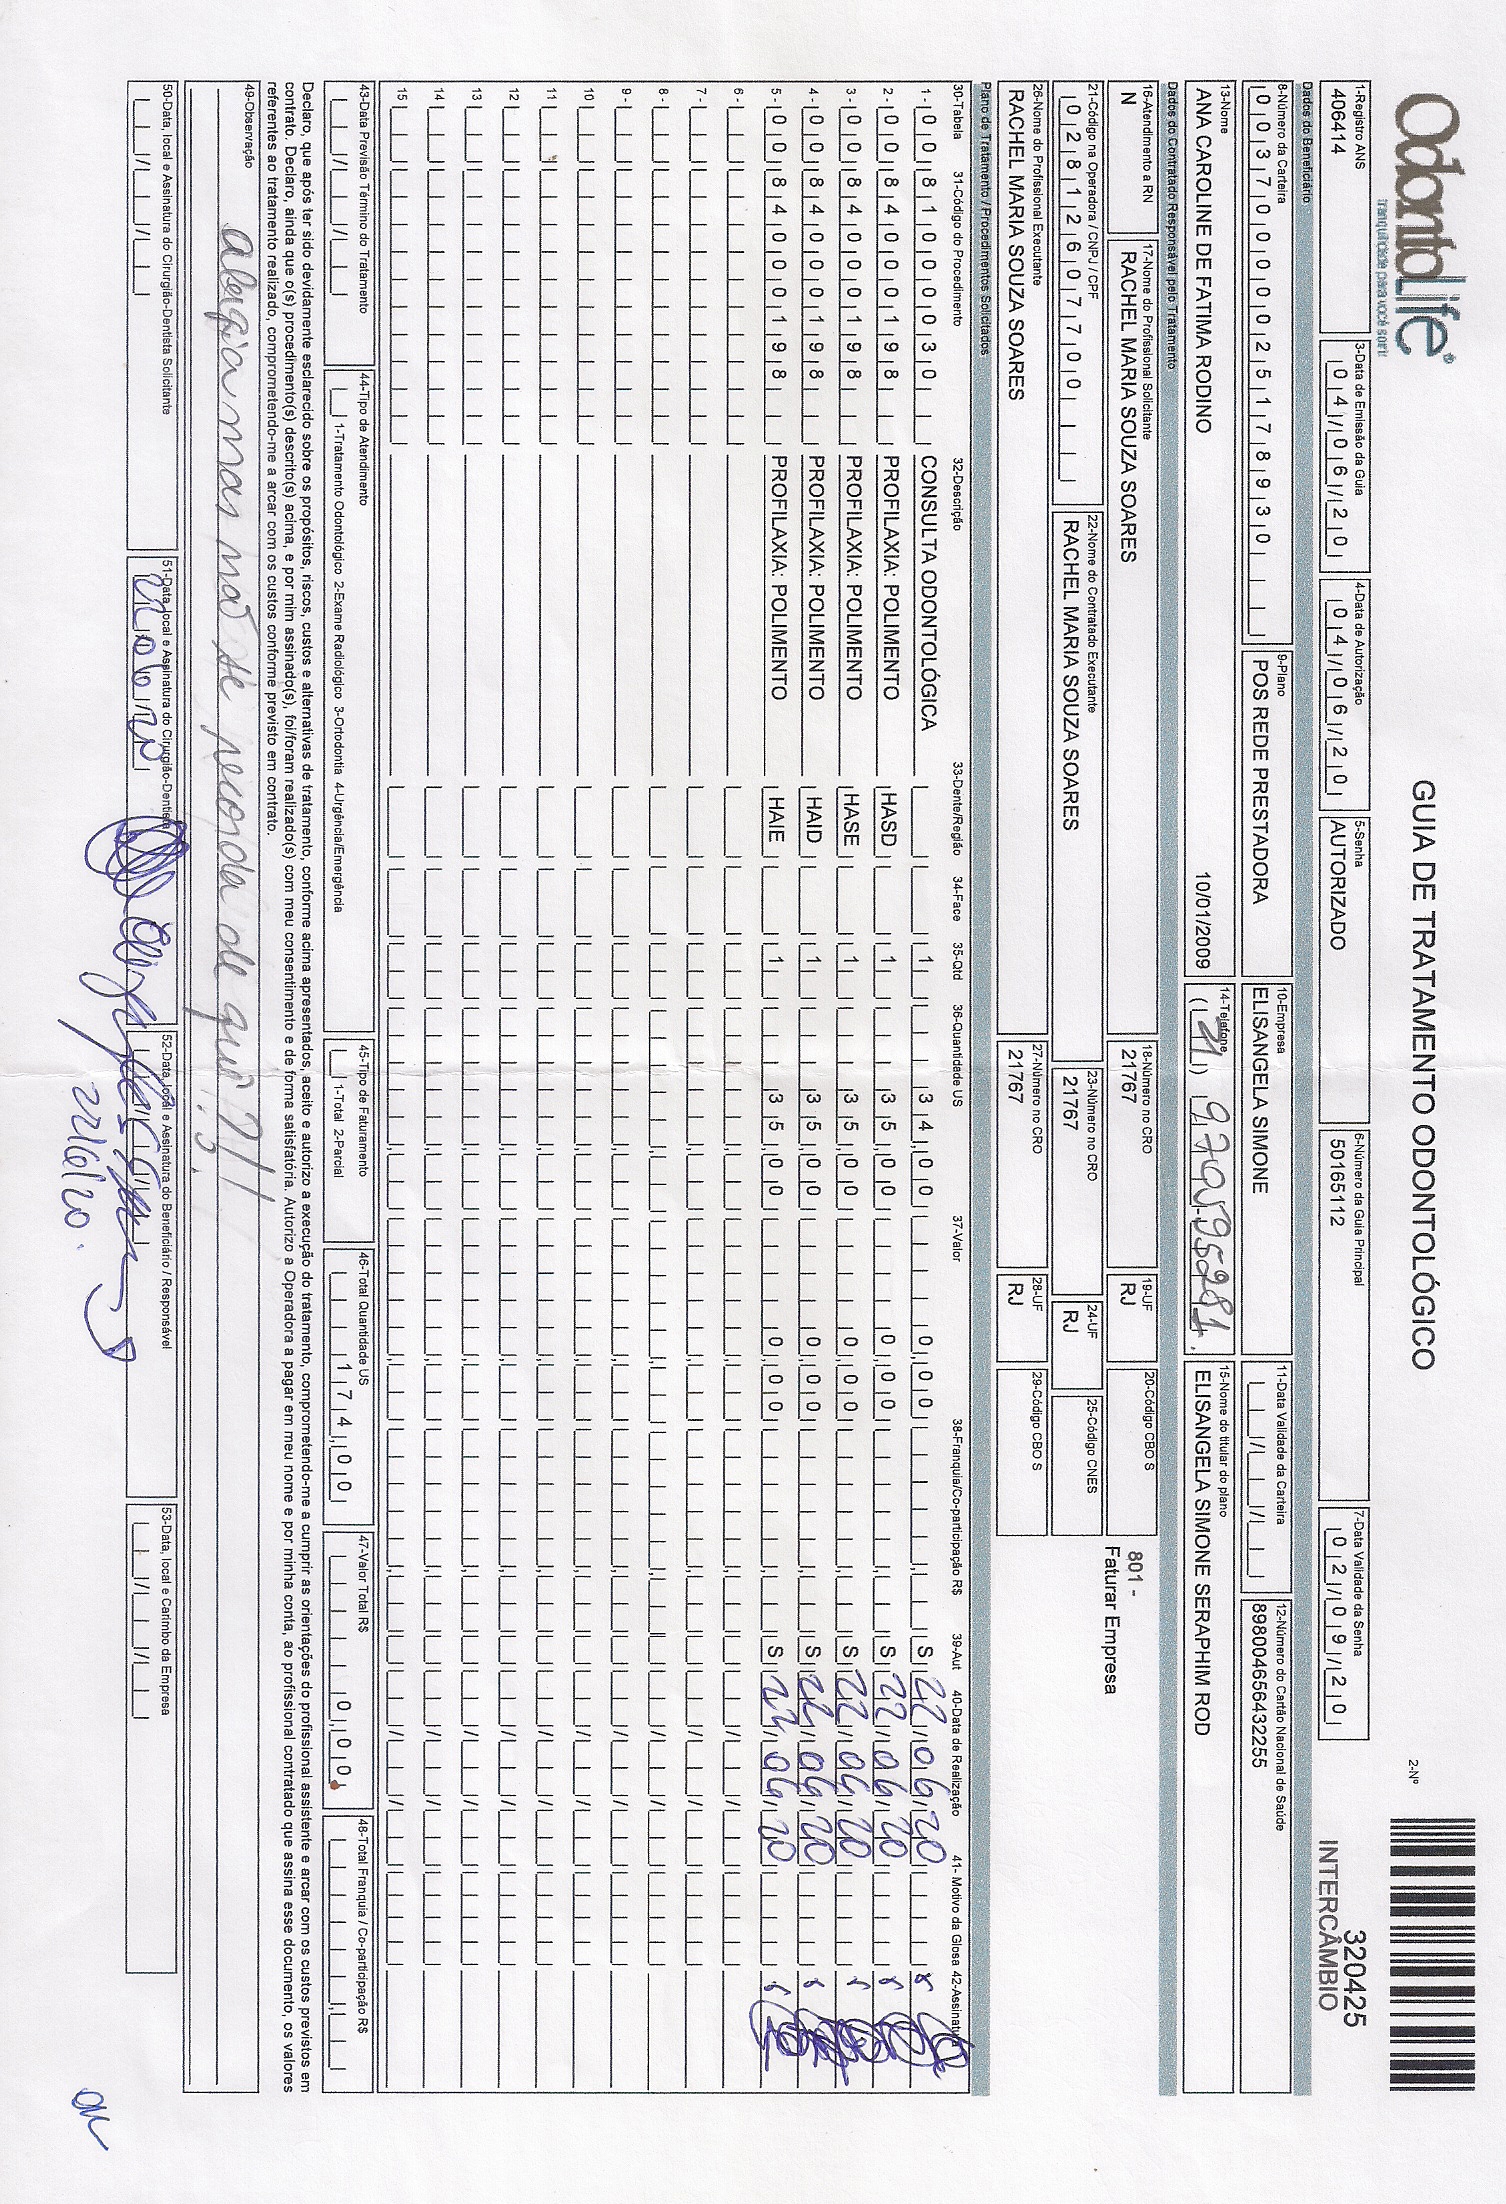 OdontoLife®
tranquilidade para você sorrir
GUIA DE TRATAMENTO ODONTOLÓGICO
2-Nº
320425
INTERCÂMBIO
1-Registro ANS 3-Data de Emissão da Guia 4-Data de Autorização 5-Senha 6-Número da Guia Principal 7-Data Validade da Senha
406414 04/06/20 04/06/20 AUTORIZADO 50165112 02/09/20
Dados do Beneficiário
8-Número da Carteira 9-Plano 10-Empresa 11-Data Validade da Carteira 12-Número do Cartão Nacional de Saúde
00370000025178930 POS REDE PRESTADORA ELISANGELA SIMONE 898004656432255
13-Nome 14-Telefone 15-Nome do titular do plano
ANA CAROLINE DE FATIMA RODINO 10/01/2009 (21) 97959-5281 ELISANGELA SIMONE SERAPHIM ROD
Dados do Contratado Responsável pelo Tratamento
16-Atendimento a RN 17-Nome do Profissional Solicitante 18-Número no CRO 19-UF 20-Código CBO S
N RACHEL MARIA SOUZA SOARES 21767 RJ
801 -
Faturar Empresa
21-Código na Operadora / CNPJ / CPF 22-Nome do Contratado Executante 23-Número no CRO 24-UF 25-Código CNES
02812607700 RACHEL MARIA SOUZA SOARES 21767 RJ
26-Nome do Profissional Executante 27-Número no CRO 28-UF 29-Código CBO S
RACHEL MARIA SOUZA SOARES 21767 RJ
Plano de Tratamento / Procedimentos Solicitados
30-Tabela 31-Código do Procedimento 32-Descrição 33-Dente/Região 34-Face 35-Qtd 36-Quantidade US 37-Valor 38-Franquia/Co-participação R$ 39-Aut 40-Data de Realização 41- Motivo da Glosa 42-Assinatura
1- 00 81000030 CONSULTA ODONTOLÓGICA 1 34,00 0,00 S 22/06/20
2- 00 84000198 PROFILAXIA: POLIMENTO HASD 1 35,00 0,00 S 22/06/20
3- 00 84000198 PROFILAXIA: POLIMENTO HASE 1 35,00 0,00 S 22/06/20
4- 00 84000198 PROFILAXIA: POLIMENTO HAID 1 35,00 0,00 S 22/06/20
5- 00 84000198 PROFILAXIA: POLIMENTO HAIE 1 35,00 0,00 S 22/06/20
6-
7-
8-
9-
10
11
12
13
14
15
43-Data Previsão Término do Tratamento 44-Tipo de Atendimento 45-Tipo de Faturamento 46-Total Quantidade US 47-Valor Total R$ 48-Total Franquia / Co-participação R$
1-Tratamento Odontológico 2-Exame Radiológico 3-Ortodontia 4-Urgência/Emergência 1-Total 2-Parcial 174,00 0,00
Declaro, que após ter sido devidamente esclarecido sobre os propósitos, riscos, custos e alternativas de tratamento, conforme acima apresentados, aceito e autorizo a execução do tratamento, comprometendo-me a cumprir as orientações do profissional assistente e arcar com os custos previstos em
contrato. Declaro, ainda que o(s) procedimento(s) descrito(s) acima, e por mim assinado(s), foi/foram realizado(s) com meu consentimento e de forma satisfatória. Autorizo a Operadora a pagar em meu nome e por minha conta, ao profissional contratado que assina esse documento, os valores
referentes ao tratamento realizado, comprometendo-me a arcar com os custos conforme previsto em contrato.
49-Observação
alergia mas não se recorda de que?!!
50-Data, local e Assinatura do Cirurgião-Dentista Solicitante 51-Data, local e Assinatura do Cirurgião-Dentista 52-Data, local e Assinatura do Beneficiário / Responsável 53-Data, local e Carimbo da Empresa
22/06/20
22/6/20.